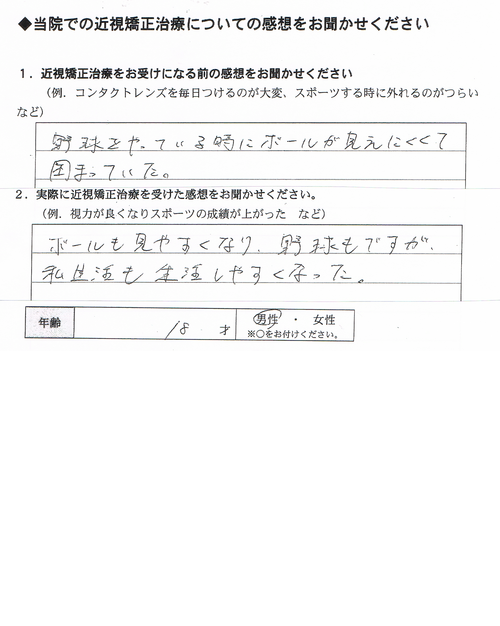 ◆当院での近視矯正治療についての感想をお聞かせください
1．近視矯正治療をお受けになる前の感想をお聞かせください
（例．コンタクトレンズを毎日つけるのが大変、スポーツする時に外れるのがつらい
など）
野球をやっている時にボールが見えにくくて
困まっていた。
2．実際に近視矯正治療を受けた感想をお聞かせください。
（例．視力が良くなりスポーツの成績が上がった　など）
ボールも見やすくなり、野球もですが、
私生活も生活しやすくなった。
年齢　18　才　男性　・　女性
※〇をお付けください。